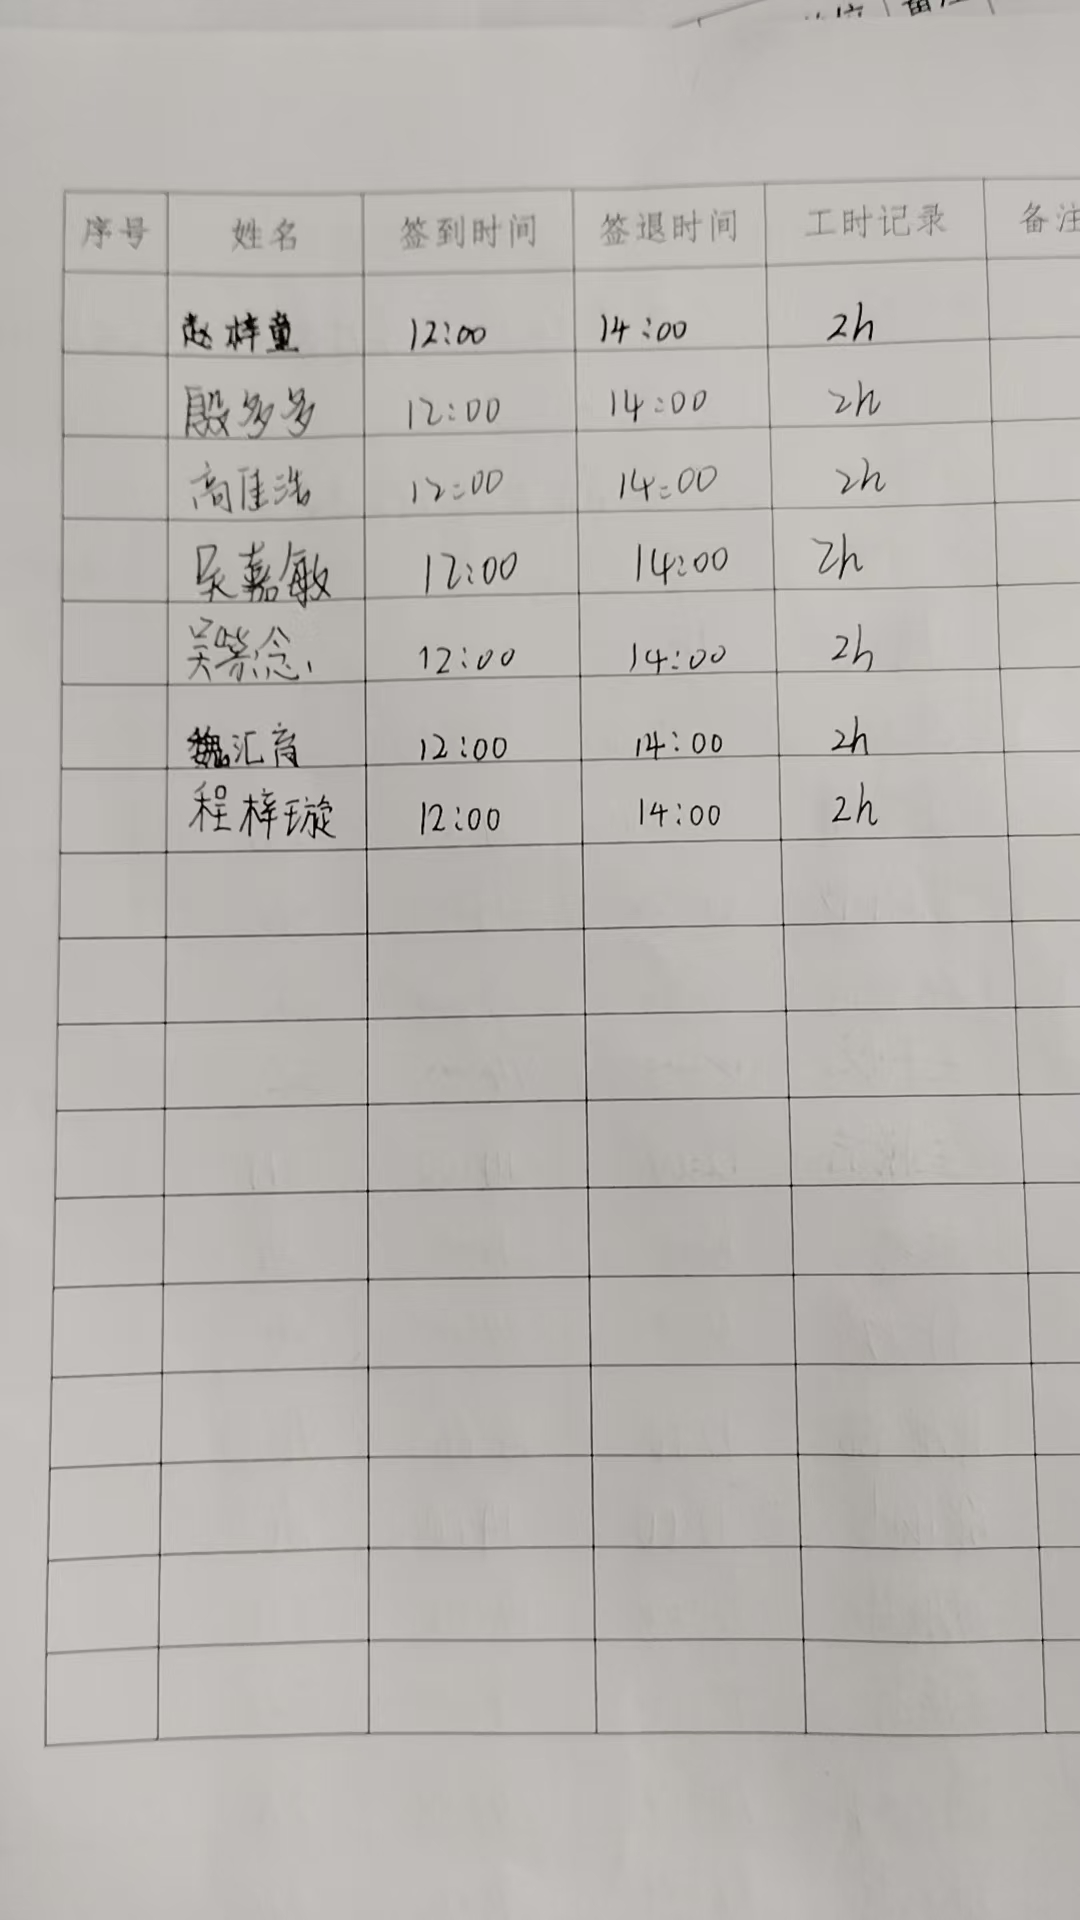 备注
序号 姓名 签到时间 签退时间 工时记录 备注
赵梓童 12:00 14:00 2h
殷多多 12:00 14:00 2h
高佳浩 12:00 14:00 2h
吴嘉敏 12:00 14:00 2h
12:00 14:00 2h
魏汇育 12:00 14:00 2h
程梓璇 12:00 14:00 2h